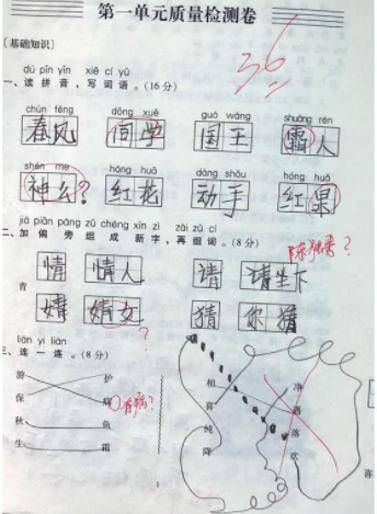 第一单元质量检测卷
36
〔基础知识〕
dú pīn yīn xiě cí yǔ
一、读拼音，写词语。(16分)
chūn fēng dōng xuě guó wáng shuāng rén
春风 同学 国王 霜人
shén me hóng huā dòng shǒu hóng huǒ
神么? 红花 动手 红果
jiā piān páng zǔ chéng xīn zì zài zǔ cí
二、加偏旁组成新字，再组词。(8分)
情 情人 请 请坐下
青
婧 婧女 猜 你猜
?
?
lián yi lián
三、连一连。(8分)
游 护 相 净
保 病 有病? 喜 遇
秋 鱼 纯 落
生 霜 降 欢